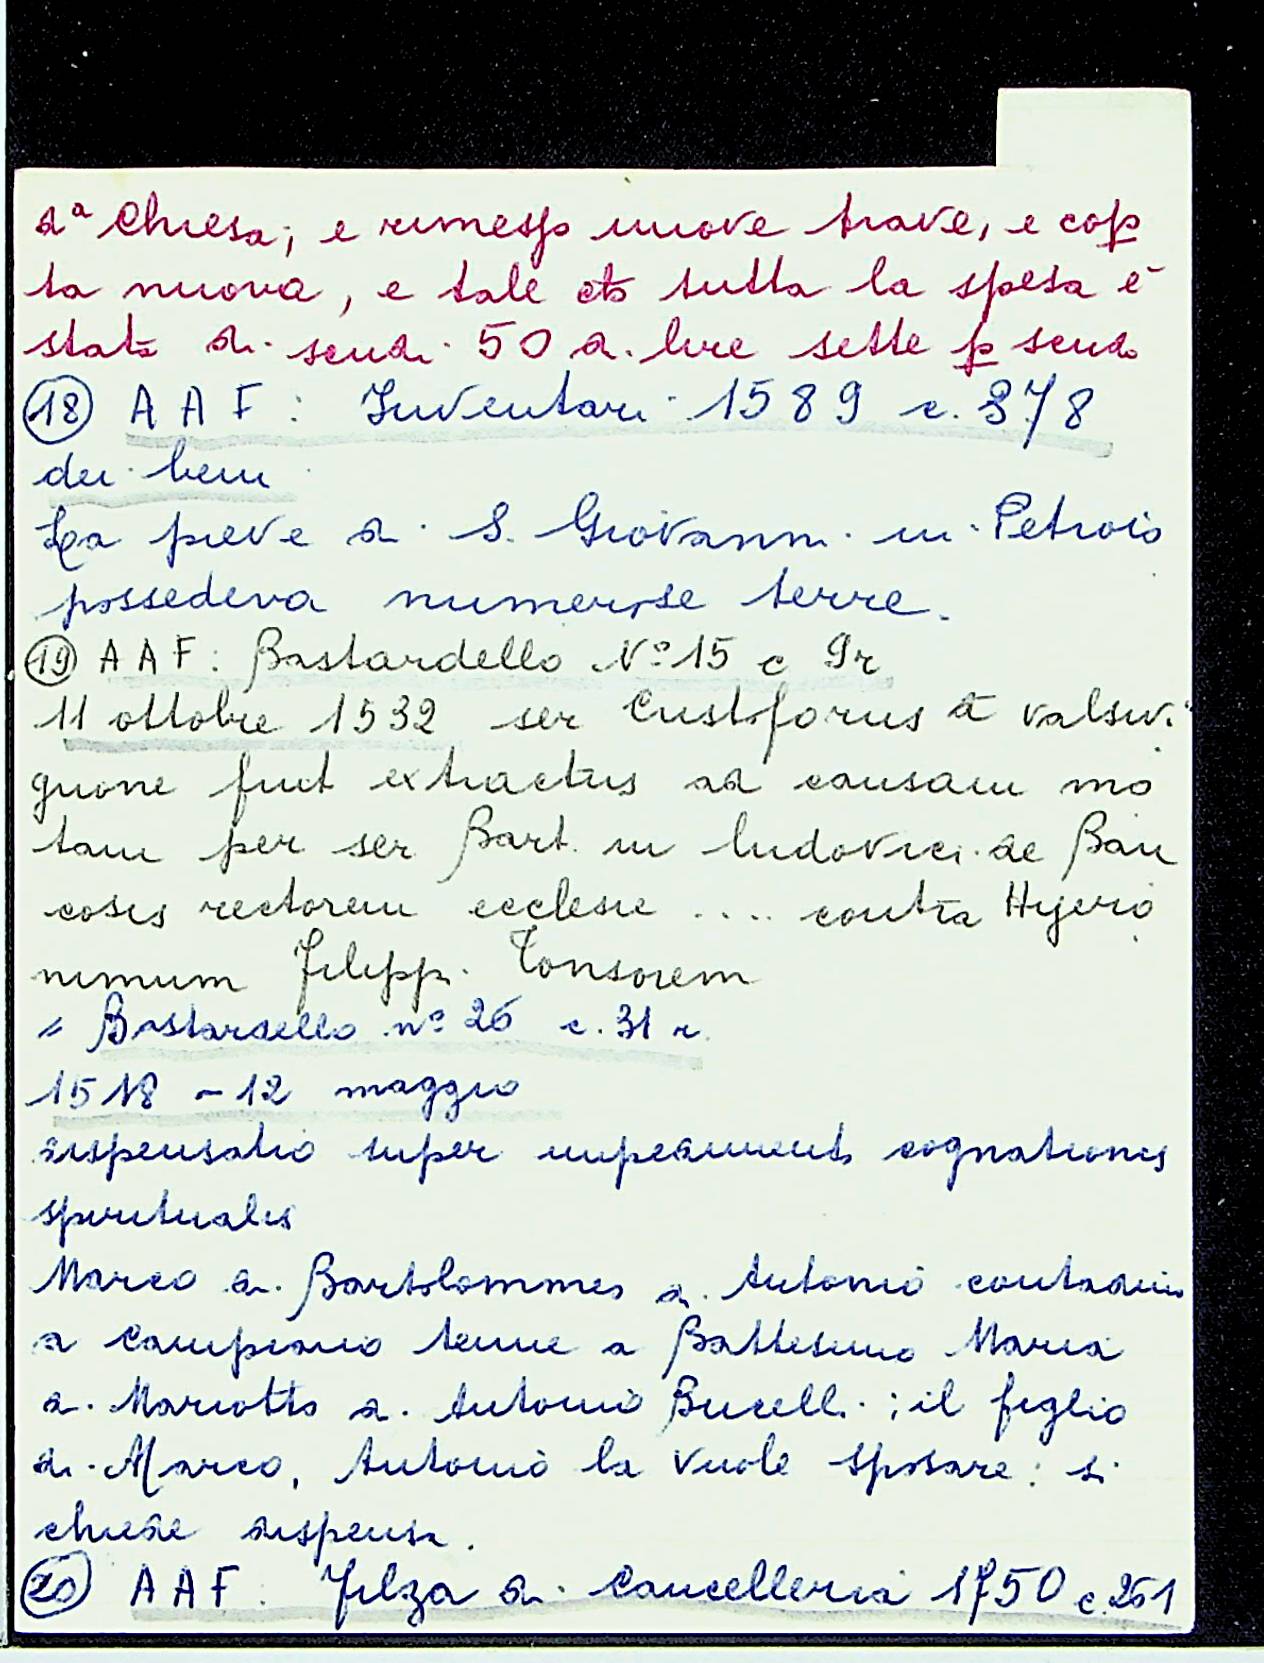 dª Chiesa; e rimesso nuove trave, e cop
ta nuova, e tale che tutta la spesa è
stata di scudi 50 di lire sette p scudo
(18) AAF: Inventari 1589 c. 378
dei beni
La pieve di S. Giovanni in Petroio
possedeva numerose terre.
(19) AAF: Bastardello N° 15 c 9r
11 ottobre 1532 ser Cristiforus a valsuv.
gnone fuit extractus ad causam mo
tam per ser Bart. m ludovici de Ban
cosis rectorem ecclesie .... contra Hyero
nimum Filipp. Tonsorem
" Bastardello n° 26 c. 31 r.
1518 - 12 maggio
dispensatio super impedimento cognationis
spiritualis
Marco di Bartolommeo di Antonio contadino
a Campiano tenne a Battesimo Maria
di Mariotto di Antonio Bucelli; il figlio
di Marco, Antonio la vuole sposare: si
chiede dispensa.
(20) AAF: Filza di Cancelleria 1750 c. 251